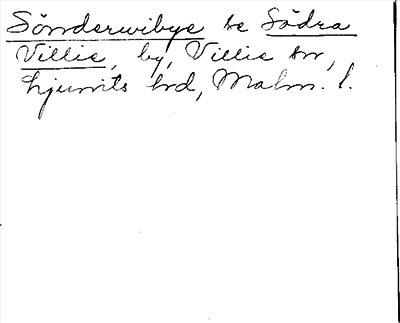 Sönderwibye se Södra
Villie, by, Villie sn,
Ljunits hrd, Malm. l.